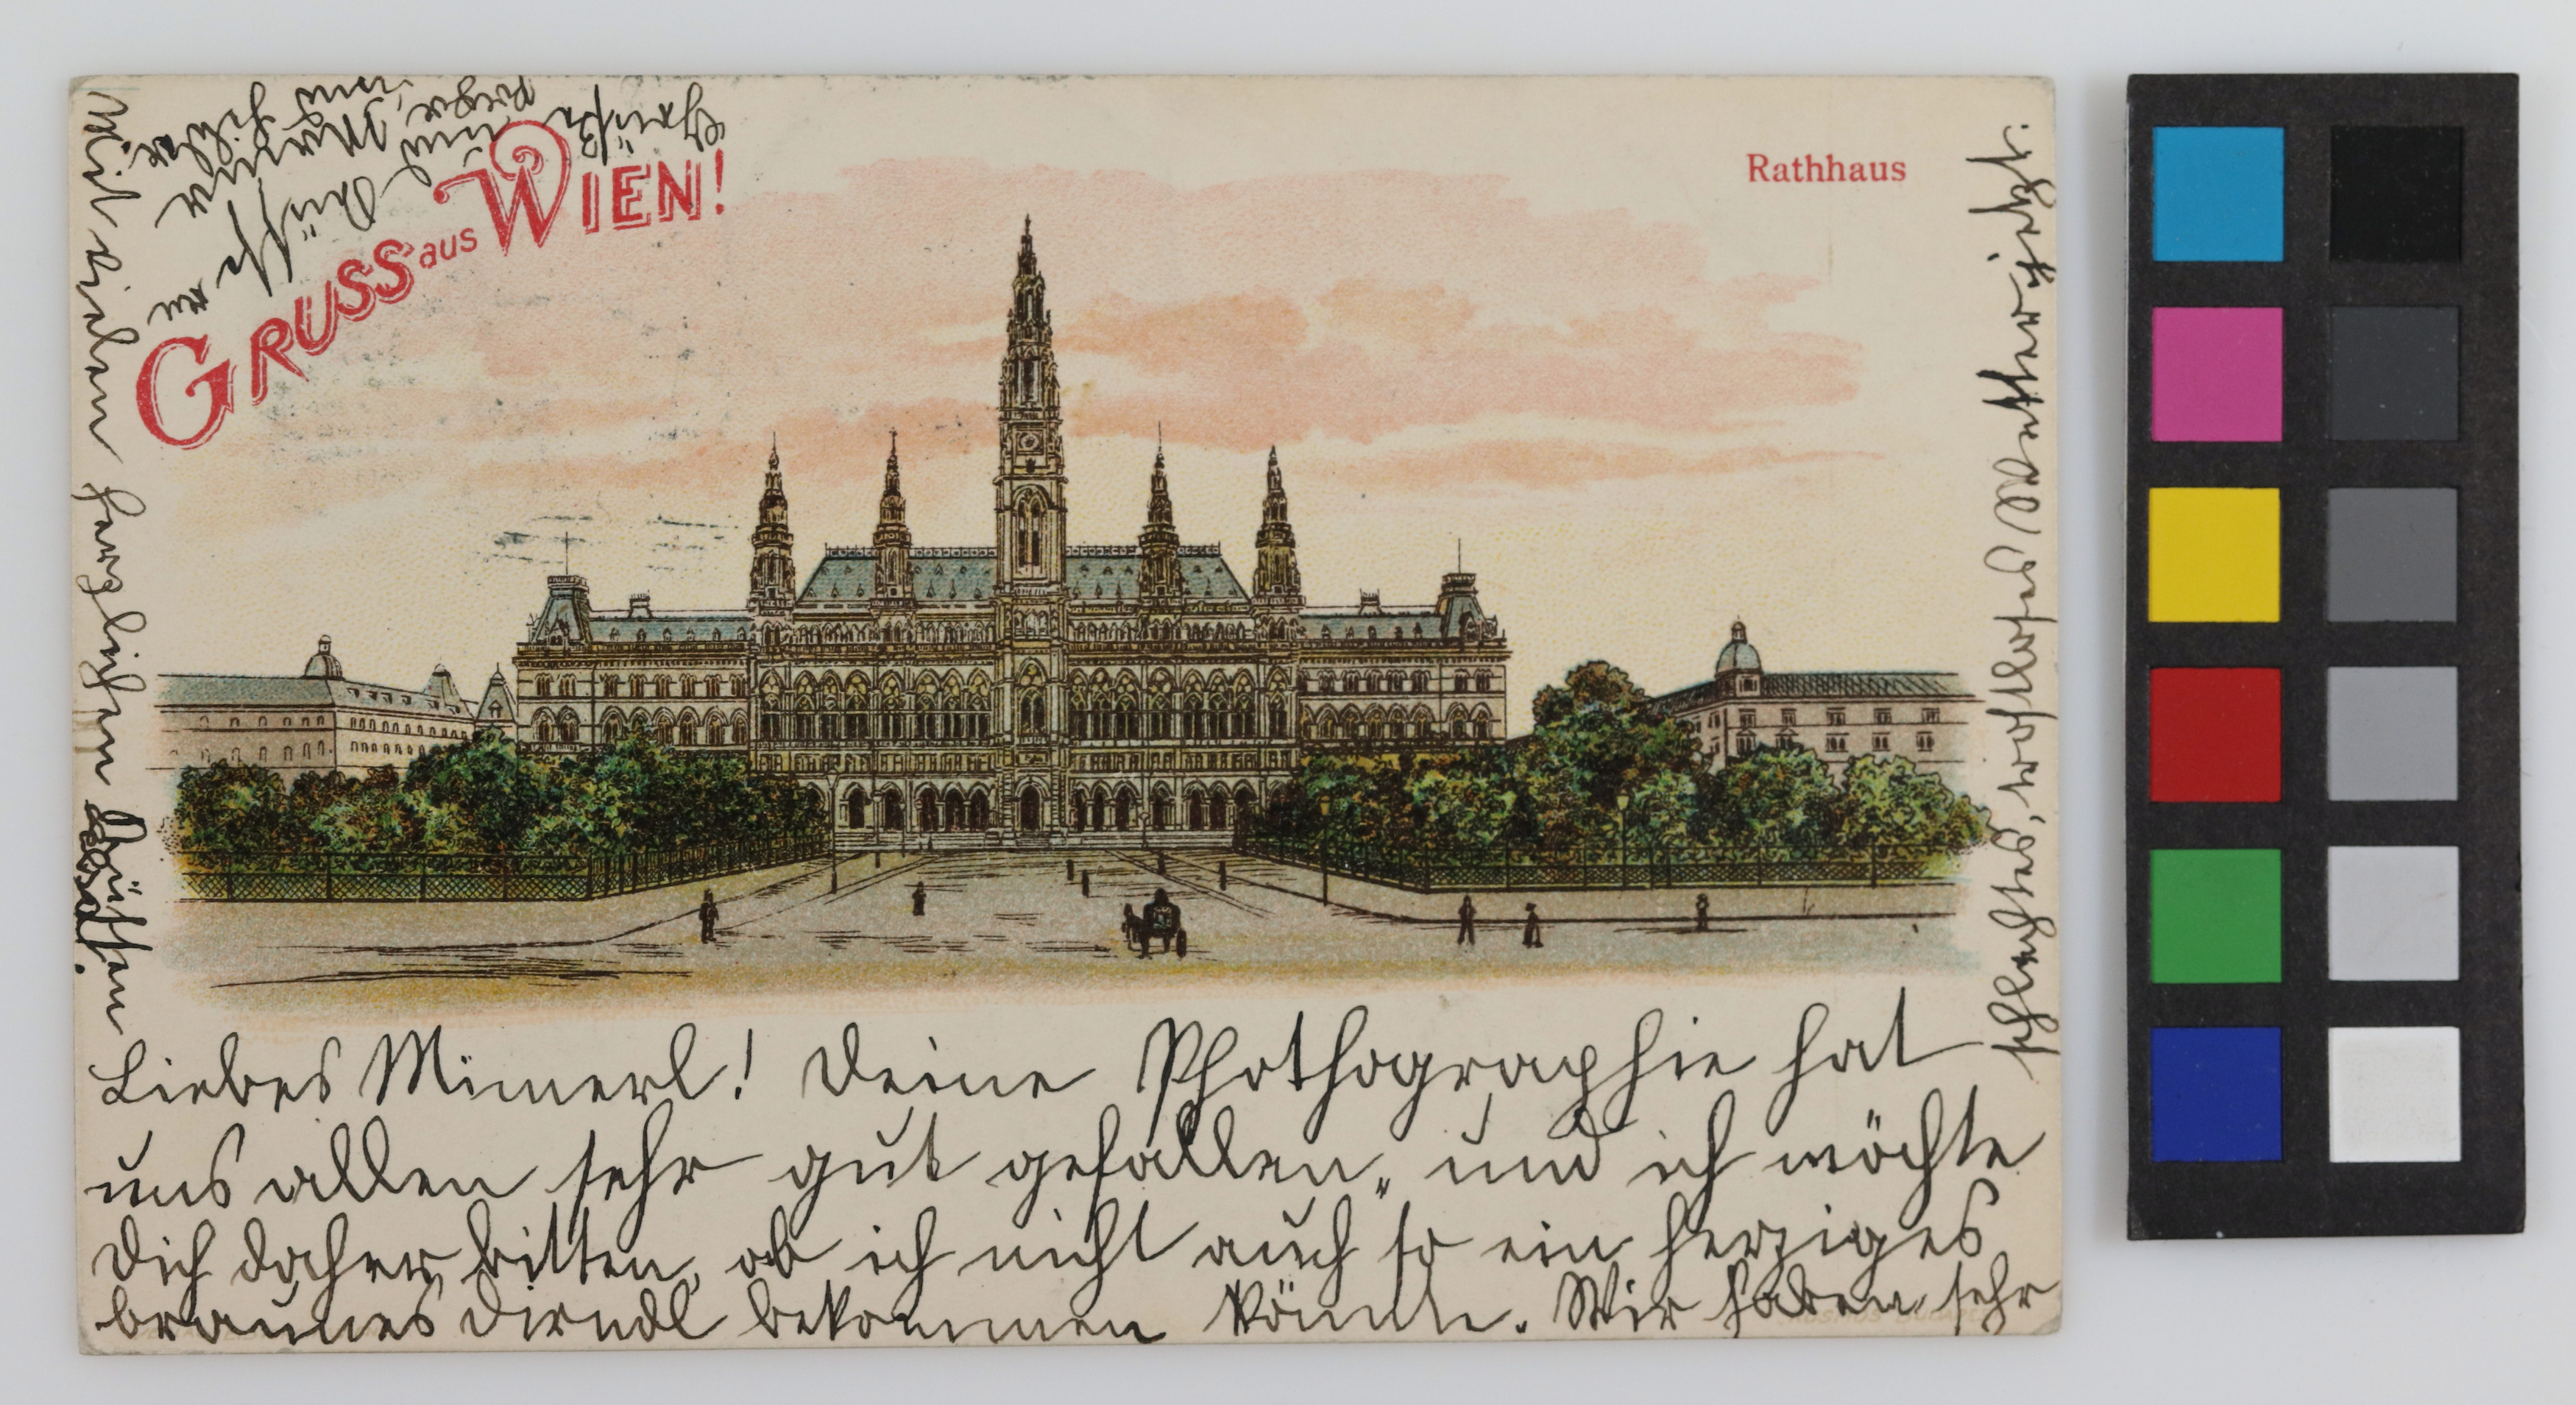 GRUSS aus WIEN!
Rathhaus
Liebes Mimerl! Deine Phothographie hat
uns allen sehr gut gefallen, und ich möchte
Dich daher bitten, ob ich nicht auch so ein herziges
braunes Dirndl bekommen könnte. Wir haben sehr
schlechtes, Wetter jetzt.
Mit vielen herzlichen Küssen
Grüße und Küsse an
Mama